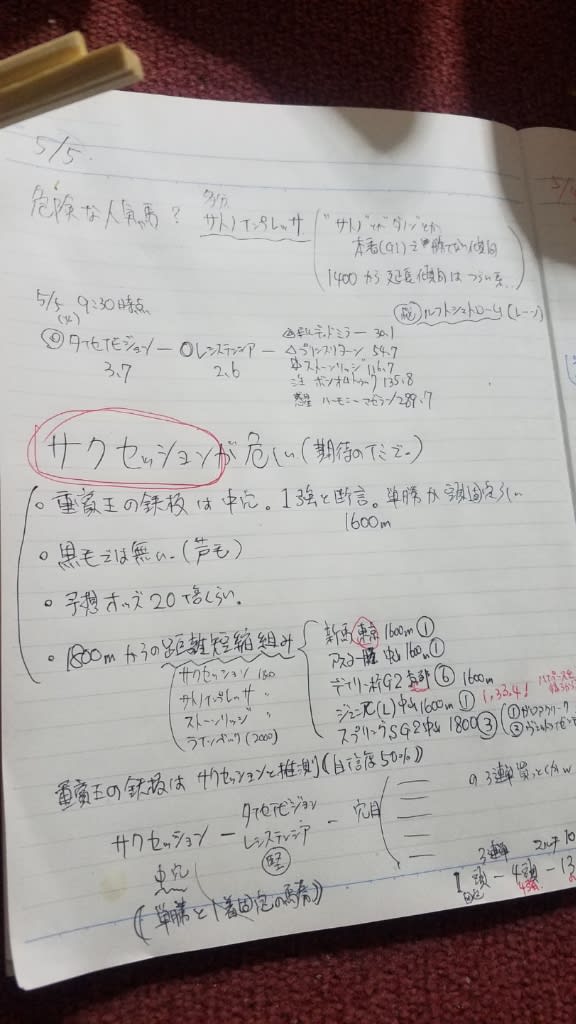 5/5.
危険な人気馬?
サトノインプレッサ
("サトノ"が"ダノン"とか
本番(G1)で勝てない傾向
1400から延長傾向はつらい系..
5/5 9:30時点
(火)
ルフトシュトローム(レーン)
◎タイセイビジョン — ○レシステンシア —
3.7 2.6
△ギルデッドミラー 30.1
△プリンスリターン 54.7
ストーンリッジ 116.7
注 ボンオムトゥック 135.8
惑星 ハーモニーマゼラン 289.7
サクセッションが危しい(期待のイミで〜)
。重賞王の鉄板は中穴。1強と断言。単勝か頭固定らしい
1600m
。黒毛では無い〜(芦毛)
。予想オッズ20倍くらい。
。1800mからの距離短縮組み
サクセッション 180
サトノインプレッサ 〃
ストーンリッジ 〃
ラインベック(2000)
新馬 東京 1600m ①
アスター賞 中山 1600m ①
デイリー杯G2 京都 ⑥ 1600m
ジュニアC(L)中山1600m ① 1,33,4!
スプリングSG2中山 1800 ③
① ガロアクリーク
② ヴェルトライゼンデ
重賞王の鉄板は サクセッションと推測(自信度50%)
の3連単買っとくかw
サクセッション — タイセイビジョン — 穴目
レシステンシア
中穴
堅
3連単 マルチ
1頭 — 4頭 — 13
固定
(単勝と1着固定の馬券)